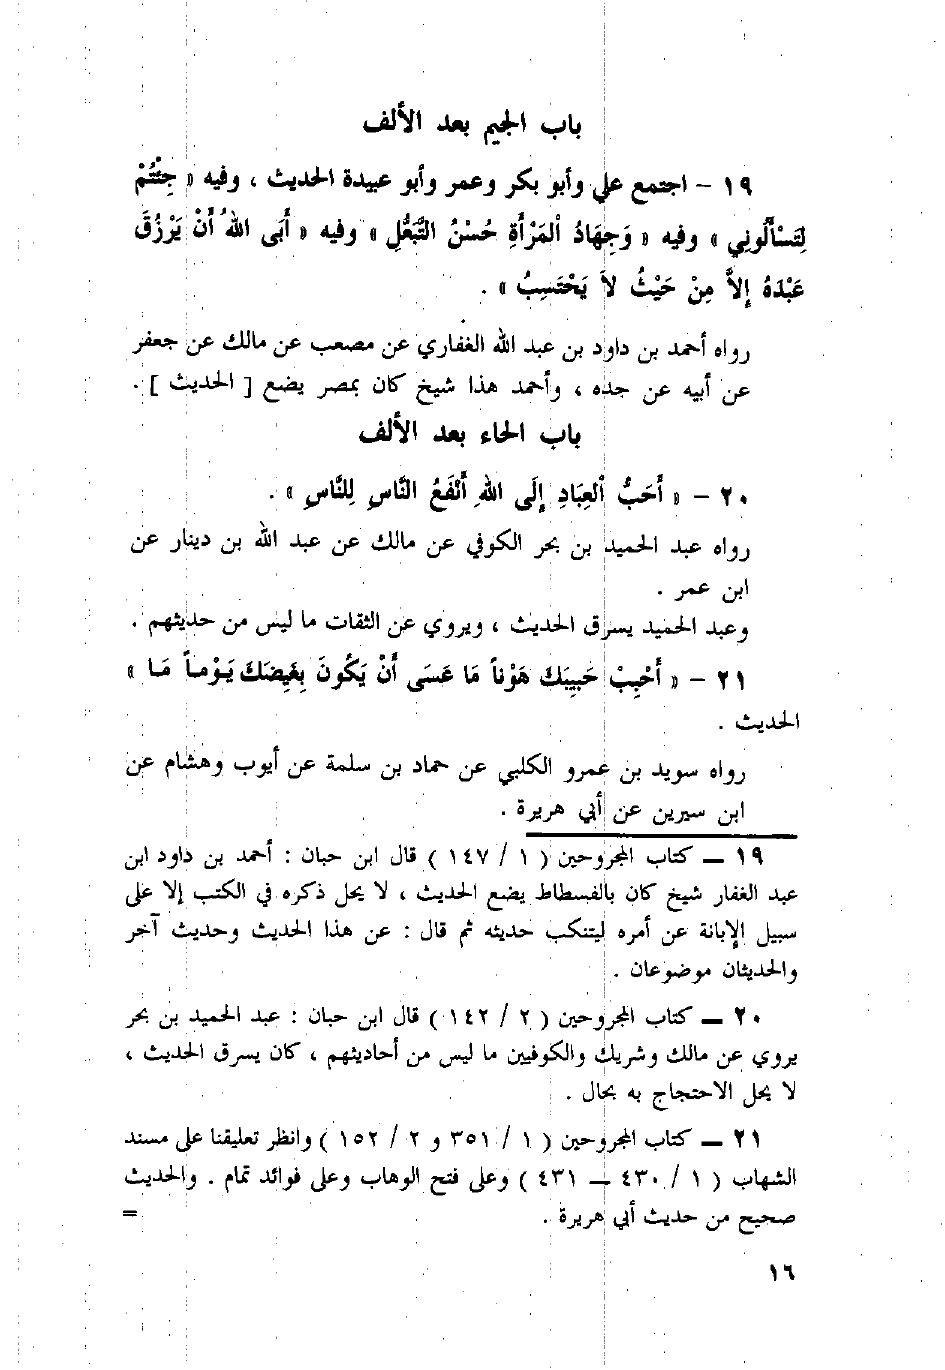 باب الجيم بعد الألف
١٩ - اجتمع علي وأبو بكر وعمر وأبو عبيدة الحديث ، وفيه « جِئْتُمْ
لِتَسْأَلُونِي » وفيه « وَجِهَادُ ٱلمَرْأَةِ حُسْنُ التَّبَعُّلِ » وفيه « أَبَى اللهُ أَنْ يَرْزُقَ
عَبْدَهُ إِلاَّ مِنْ حَيْثُ لاَ يَحْتَسِبُ » .
رواه أحمد بن داود بن عبد الله الغفاري عن مصعب عن مالك عن جعفر
عن أبيه عن جده ، وأحمد هذا شيخ كان بمصر يضع [ الحديث ] .
باب الحاء بعد الألف
٢٠ - « أَحَبُّ ٱلعِبَادِ إِلَى اللهِ أَنْفَعُ النَّاسِ لِلنَّاسِ » .
رواه عبد الحميد بن بحر الكوفي عن مالك عن عبد الله بن دينار عن
ابن عمر .
وعبد الحميد يسرق الحديث ، ويروي عن الثقات ما ليس من حديثهم .
٢١ - « أَحْبِبْ حَبِيبَكَ هَوْناً مَا عَسَى أَنْ يَكُونَ بِغَيِضَكَ يَوْماً مَا »
الحديث .
رواه سويد بن عمرو الكلبي عن حماد بن سلمة عن أيوب وهشام عن
ابن سيرين عن أبي هريرة .
١٩ — كتاب المجروحين ( ١ / ١٤٧ ) قال ابن حبان : أحمد بن داود ابن
عبد الغفار شيخ كان بالفسطاط يضع الحديث ، لا يحل ذكره في الكتب إلا على
سبيل الإبانة عن أمره ليتنكب حديثه ثم قال : عن هذا الحديث وحديث آخر
والحديثان موضوعان .
٢٠ — كتاب المجروحين ( ٢ / ١٤٢ ) قال ابن حبان : عبد الحميد بن بحر
يروي عن مالك وشريك والكوفيين ما ليس من أحاديثهم ، كان يسرق الحديث ،
لا يحل الاحتجاج به بحال .
٢١ — كتاب المجروحين ( ١ / ٣٥١ و ٢ / ١٥٢ ) وانظر تعليقنا على مسند
الشهاب ( ١ / ٤٣٠ – ٤٣١ ) وعلى فتح الوهاب وعلى فوائد تمام . والحديث
صحيح من حديث أبي هريرة . =
١٦